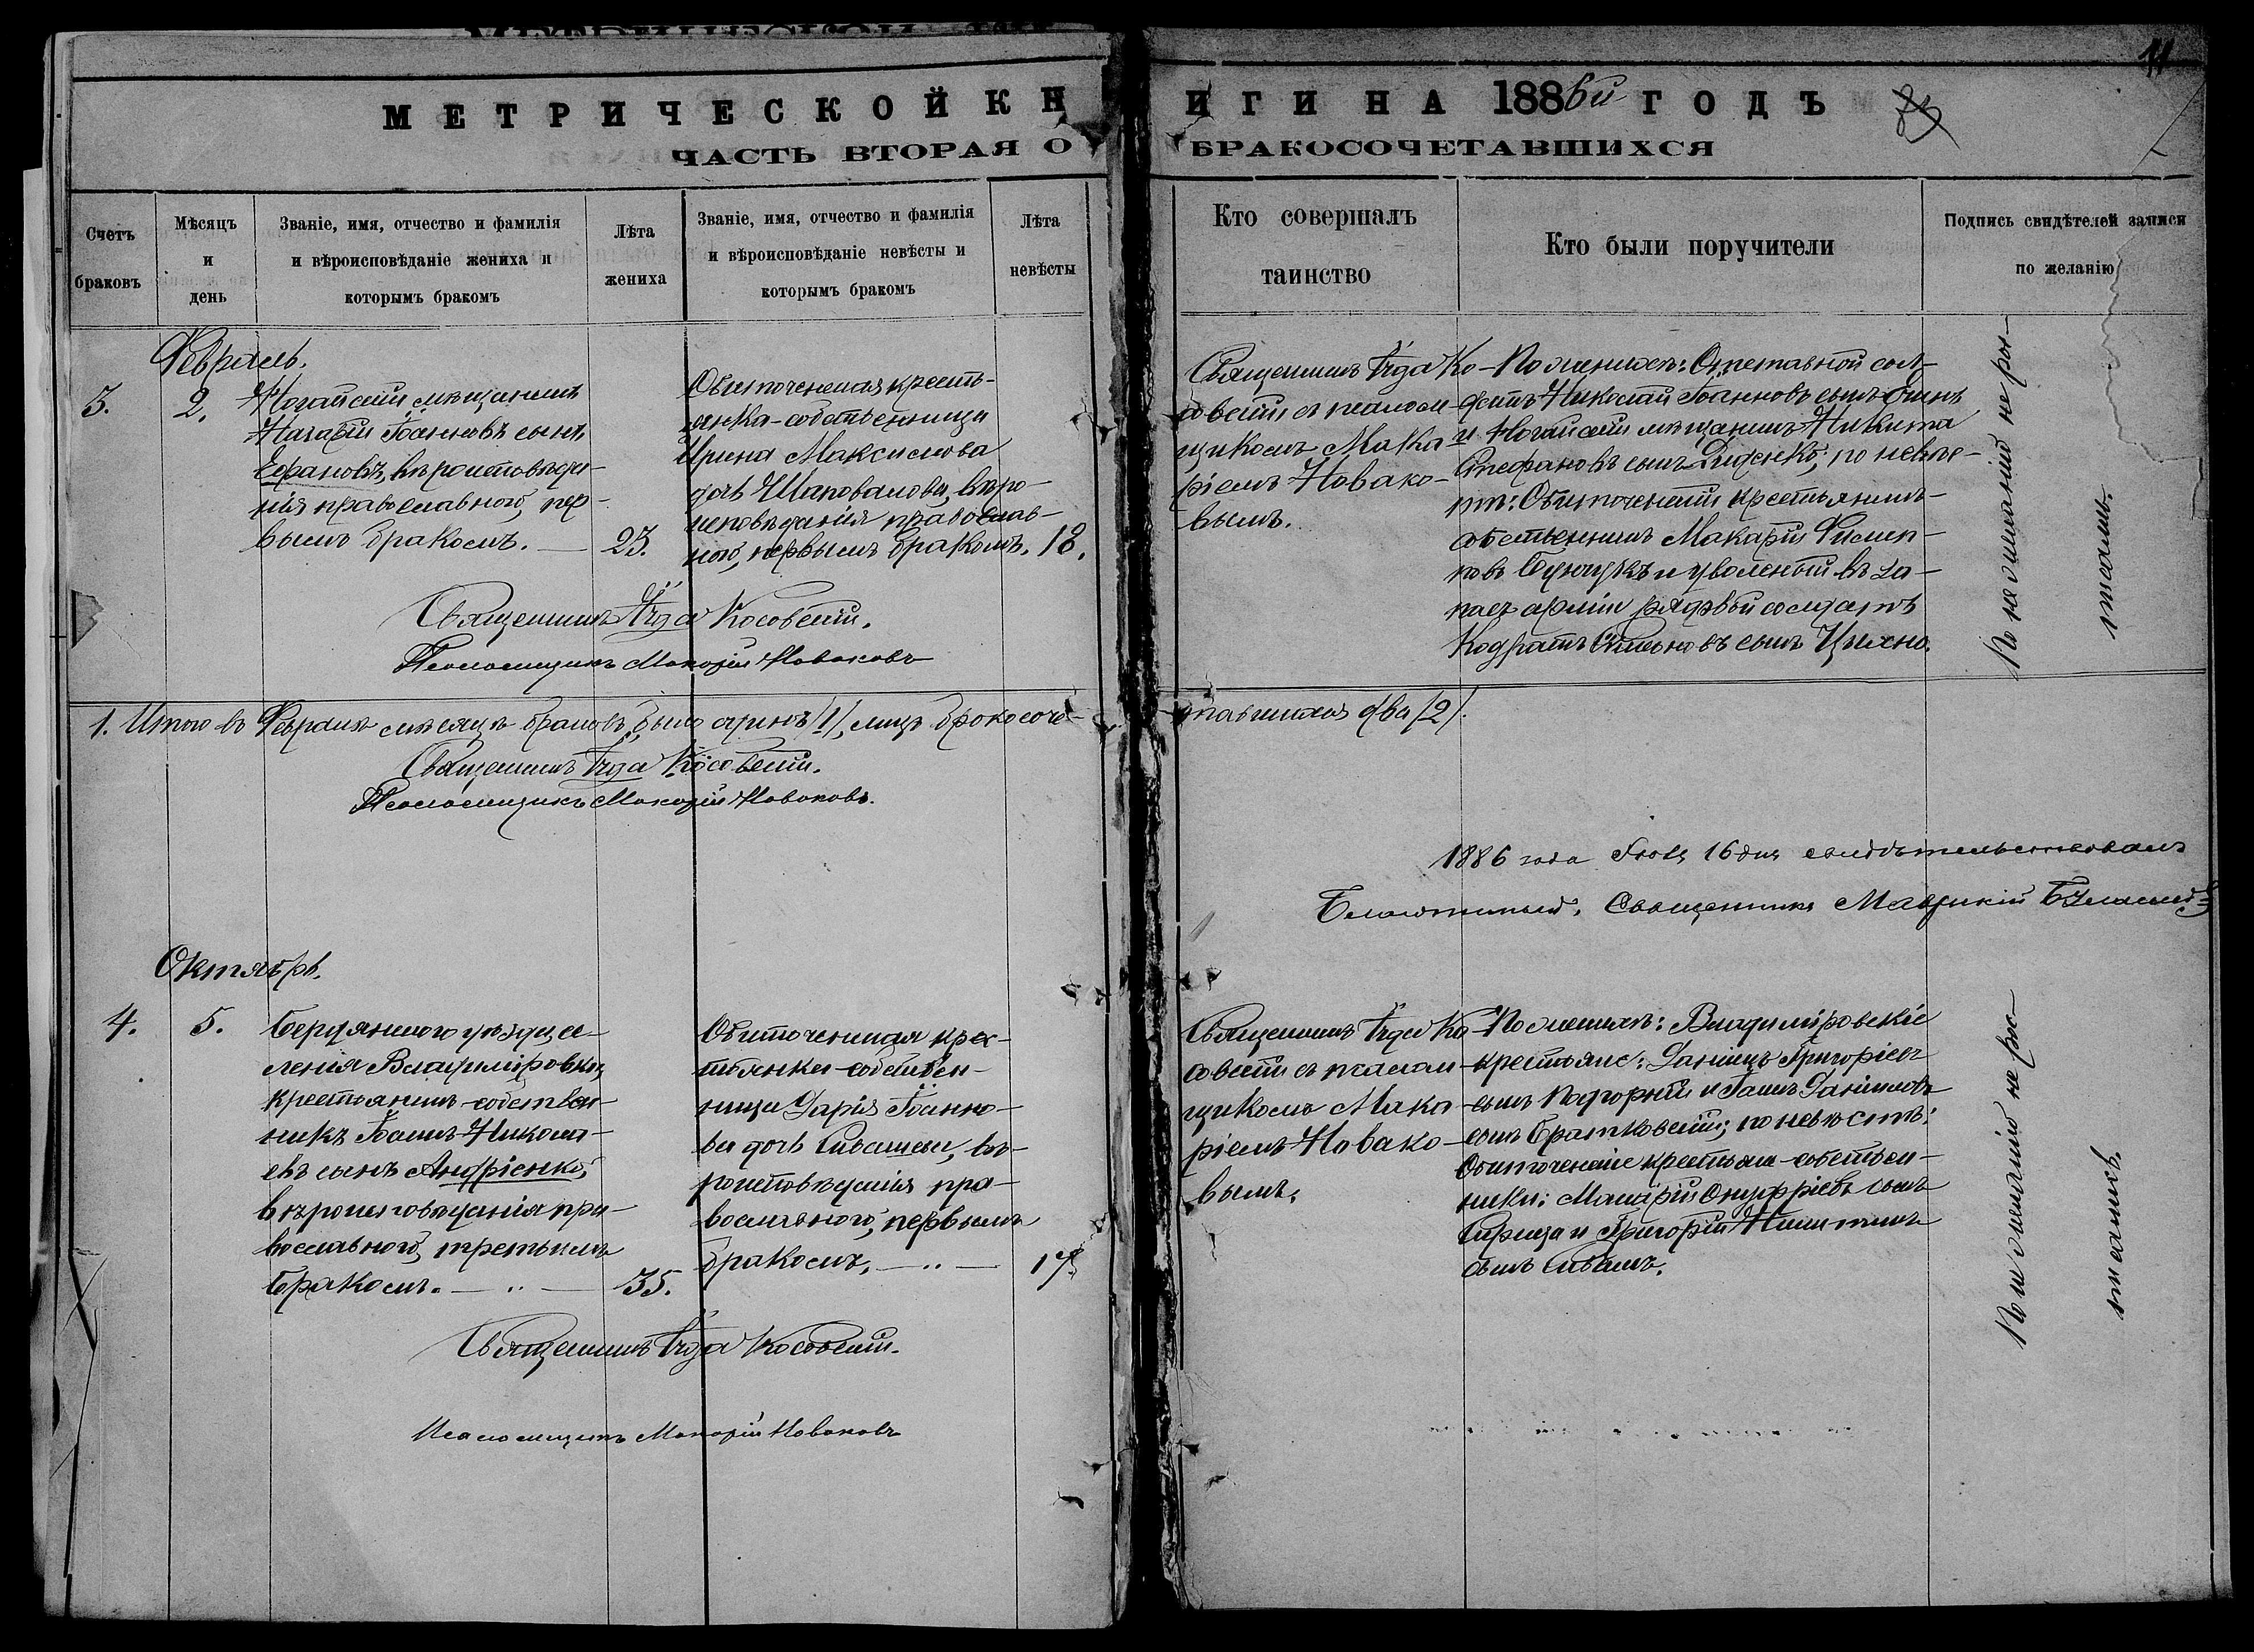 11
МЕТРИЧЕСКОЙ КНИГИ НА 1886й ГОДЪ
ЧАСТЬ ВТОРАЯ О БРАКОСОЧЕТАВШИХСЯ
Счетъ браковъ
Мѣсяцъ и день
Званіе, имя, отчество и фамилія и вѣроисповѣданіе жениха и которымъ бракомъ
Лѣта жениха
Званіе, имя, отчество и фамилія и вѣроисповѣданіе невѣсты и которымъ бракомъ
Лѣта невѣсты
Кто совершалъ таинство
Кто были поручители
Подпись свидѣтелей записи по желанію
Февраль.
3.
2.
Ногайскій мѣщанинъ
Назарій Іоанновъ сынъ
вѣроисповѣда-
нія православного, пер-
вымъ бракомъ.
23.
Обиточенская кресть-
янка-собственница
Ирина Максимова
дочь Шаповалова, вѣро-
исповѣданія православ-
ного, первымъ бракомъ.
18.
Священникъ Іуда Ко-
совскій съ псаломщ-
щикомъ Мака-
ріемъ Новако-
вымъ.
По женихѣ: Отставной сол-
датъ Николай Іоанновъ сынъ
и Ногайскій мѣщанинъ Никита
Стефановъ сынъ Диденко; по невѣс-
тѣ: Обиточенскій крестьянинъ-
собственникъ Макарій Филип-
повъ и уволеный въ за-
пасъ арміи рядовый солдатъ
Кодратъ сынъ
По незнанію не рос-
писались.
Священникъ Іуда Косовскій.
Псаломщикъ Макарій Новаковъ
1. Итого въ Февралѣ мѣсяцѣ браковъ было одинъ /1/, лицъ бракосоче-
тавшихся два /2/.
Священникъ Іуда Косовскій.
Псаломщикъ Макарій Новаковъ.
1886 года 16 дня свидѣтельствовалъ
Благочинный, Священникъ Маврикій
Октябрь.
4.
5.
Бердянского уѣзда се-
ленія Владиміровки,
крестьянинъ-собствен-
никъ Іоаннъ Никола-
евъ сынъ Андріенко,
вѣроисповѣданія пра-
вославного, третьимъ
бракомъ.
35.
Обиточенская крес-
тьянка-собствен-
ница Дарія Іоанно-
ва дочь вѣ-
роисповѣданія пра-
вославного, первымъ
бракомъ.
17.
Священникъ Іуда Ко-
совскій съ псалом-
щикомъ Мака-
ріемъ Новако-
вымъ.
По женихѣ: Владиміровскіе
крестьяне: Даніилъ Григоріевъ
сынъ Подгорный и Іоаннъ Даніиловъ
сынъ Братковскій; по невѣстѣ:
Обиточенскіе крестьяне-собствен-
ники: Макарій Онуфріевъ сынъ
и Григорій Никитинъ
сынъ
По незнанію не рос-
писались.
Священникъ Іуда Косовскій.
Псаломщикъ Макарій Новаковъ